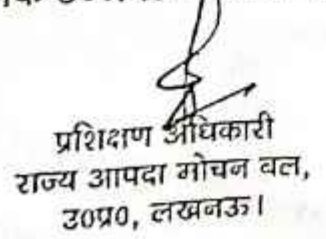 प्रशिक्षण अधिकारी
राज्य आपदा मोचन बल,
उ0प्र0, लखनऊ।